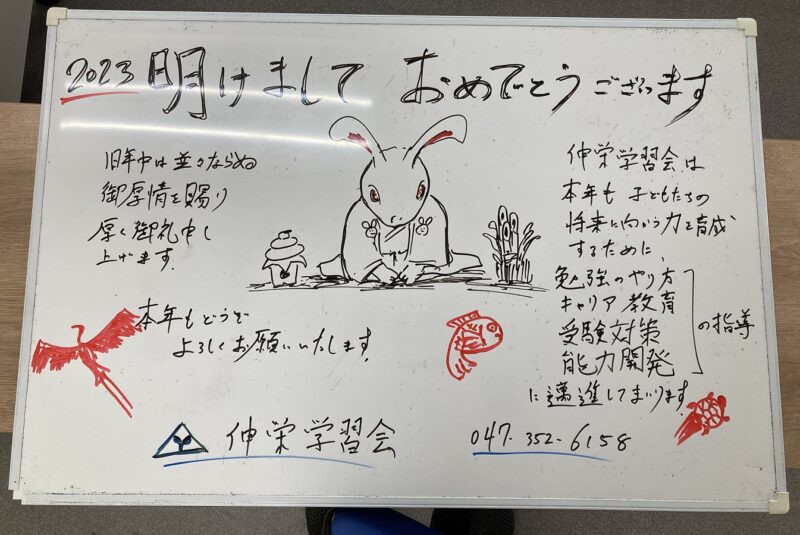 2023 明けまして おめでとうございます
旧年中は並々ならぬ
御厚情を賜り
厚く御礼申し
上げます。
本年もどうぞ
よろしくお願いいたします。
伸栄学習会は
本年も 子どもたちの
将来に向かう力を育成
するために、
勉強のやり方
キャリア教育
受験対策
能力開発
の指導
に邁進してまいります。
伸栄学習会
047-352-6158